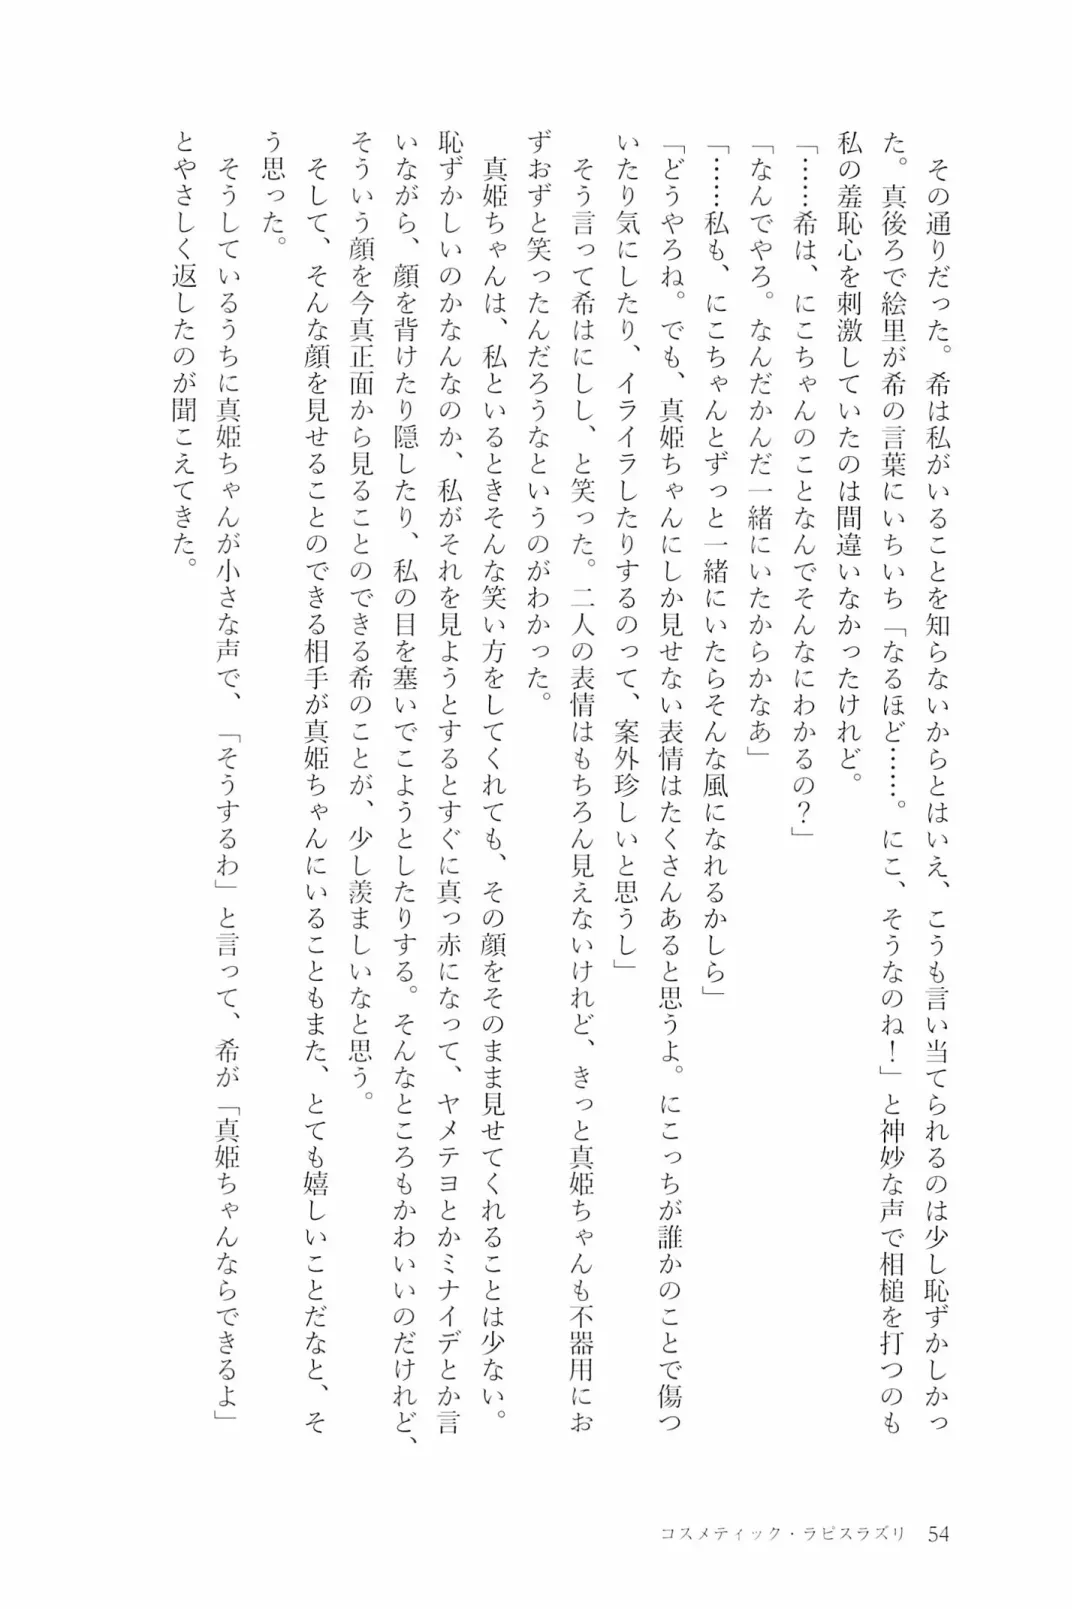 その通りだった。希は私がいることを知らないからとはいえ、こうも言い当てられるのは少し恥ずかしかっ
た。真後ろで絵里が希の言葉にいちいち「なるほど……。にこ、そうなのね！」と神妙な声で相槌を打つのも
私の羞恥心を刺激していたのは間違いなかったけれど。
「……希は、にこちゃんのことなんでそんなにわかるの？」
「なんでやろ。なんだかんだ一緒にいたからかなあ」
「……私も、にこちゃんとずっと一緒にいたらそんな風になれるかしら」
「どうやろね。でも、真姫ちゃんにしか見せない表情はたくさんあると思うよ。にこっちが誰かのことで傷つ
いたり気にしたり、イライラしたりするのって、案外珍しいと思うし」
そう言って希はにしし、と笑った。二人の表情はもちろん見えないけれど、きっと真姫ちゃんも不器用にお
ずおずと笑ったんだろうなというのがわかった。
真姫ちゃんは、私といるときそんな笑い方をしてくれても、その顔をそのまま見せてくれることは少ない。
恥ずかしいのかなんなのか、私がそれを見ようとするとすぐに真っ赤になって、ヤメテヨとかミナイデとか言
いながら、顔を背けたり隠したり、私の目を塞いでこようとしたりする。そんなところもかわいいのだけれど、
そういう顔を今真正面から見ることのできる希のことが、少し羨ましいなと思う。
そして、そんな顔を見せることのできる相手が真姫ちゃんにいることもまた、とても嬉しいことだなと、そ
う思った。
そうしているうちに真姫ちゃんが小さな声で、「そうするわ」と言って、希が「真姫ちゃんならできるよ」
とやさしく返したのが聞こえてきた。
コスメティック・ラピスラズリ 54